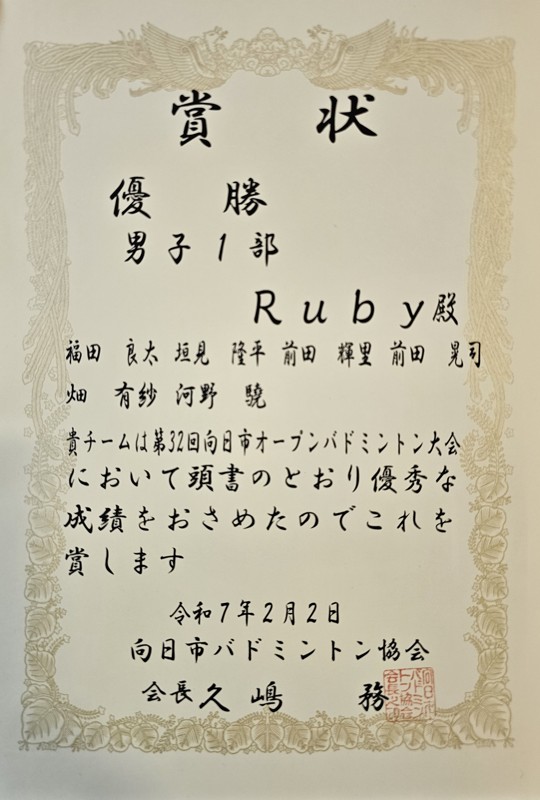 賞状
優勝
男子1部
Ruby殿
福田 良太 垣見 隆平 前田 輝里 前田 晃司
畑 有紗 河野 驍
貴チームは第32回向日市オープンバドミントン大会
において頭書のとおり優秀な
成績をおさめたのでこれを
賞します
令和7年2月2日
向日市バドミントン協会
会長 久嶋 務